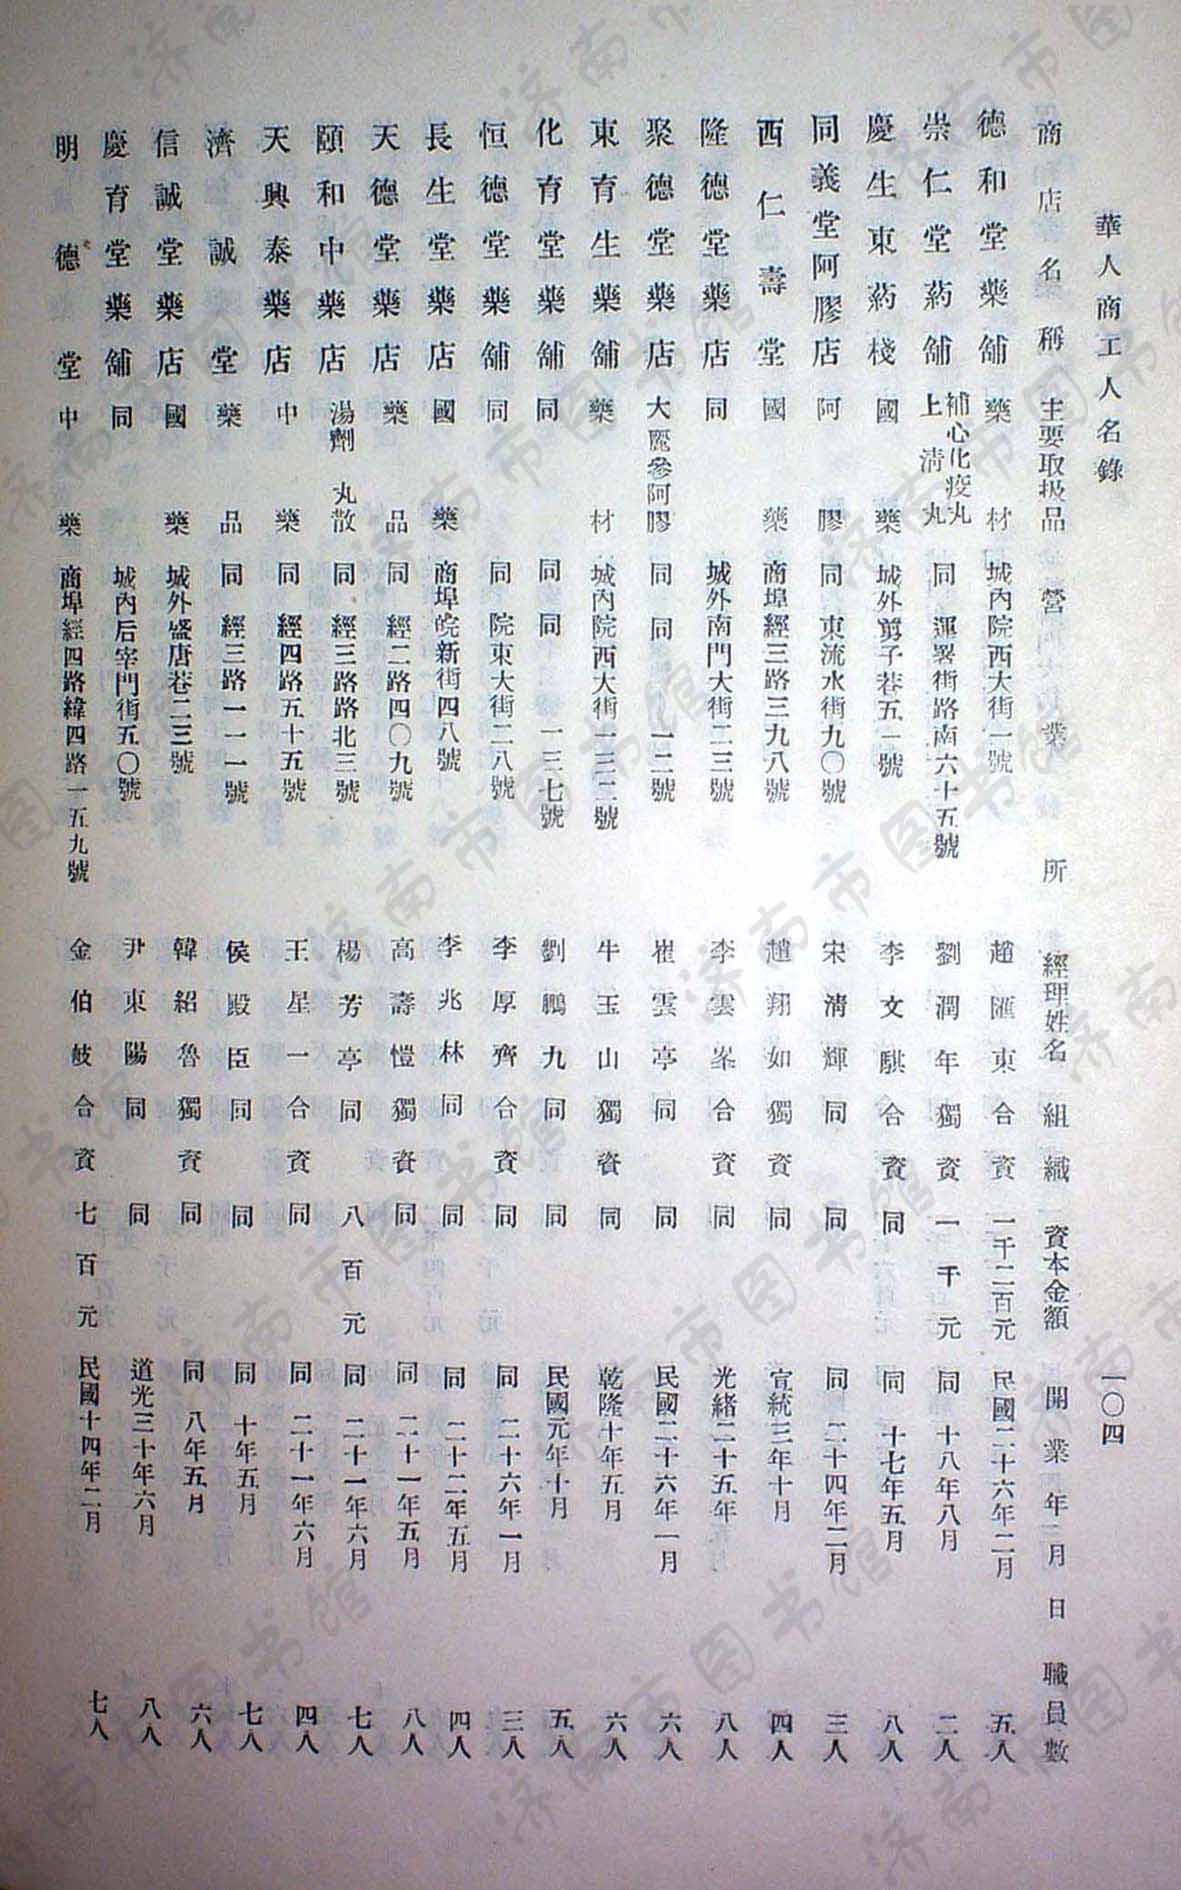 華人商工人名錄 一〇四
商店名稱 主要取扱品 營業所 經理姓名 組織 資本金額 開業年月日 職員數
德和堂藥舖 藥材 城內院西大街一號 趙匯東 合資 一千二百元 民國二十六年二月 五人
崇仁堂葯舖 補心化疫丸 上清丸 同 運署街路南六十五號 劉潤年 獨資 一千元 同 十八年八月 二人
慶生東葯棧 國藥 城外剪子巷五一號 李文騏 合資 同 同 十七年五月 八人
同義堂阿膠店 阿膠 同 東流水街九〇號 宋清輝 同 同 同 二十四年二月 三人
西仁壽堂 國藥 商埠經三路三九八號 趙翔如 獨資 同 宣統三年十月 四人
隆德堂藥店 同 城外南門大街二三號 李雲峯 合資 同 光緒二十五年 八人
聚德堂藥店 大麗參阿膠 同 同 一二號 崔雲亭 同 同 民國二十六年一月 六人
東育生藥舖 藥材 城內院西大街一三二號 牛玉山 獨資 同 乾隆十年五月 六人
化育堂藥舖 同 同 同 一三七號 劉鵬九 同 同 民國元年十月 五人
恒德堂藥舖 同 同 院東大街二八號 李厚齊 合資 同 同 二十六年一月 三人
長生堂藥店 國藥 商埠皖新街四八號 李兆林 同 同 同 二十二年五月 四人
天德堂藥店 藥品 同 經二路四〇九號 高壽愷 獨資 同 同 二十一年五月 八人
頤和中藥店 湯劑丸散 同 經三路路北三號 楊芳亭 同 八百元 同 二十一年六月 七人
天興泰藥店 中藥 同 經四路五十五號 王星一 合資 同 同 二十一年六月 四人
濟誠堂 藥品 同 經三路一一一號 侯殿臣 同 同 同 十年五月 七人
信誠堂藥店 國藥 城外盛唐巷二三號 韓紹魯 獨資 同 同 八年五月 六人
慶育堂藥舖 同 城內后宰門街五〇號 尹東陽 同 同 道光三十年六月 八人
明德堂 中藥 商埠經四路緯四路一五九號 金伯岐 合資 七百元 民國十四年二月 七人
济南市图书馆